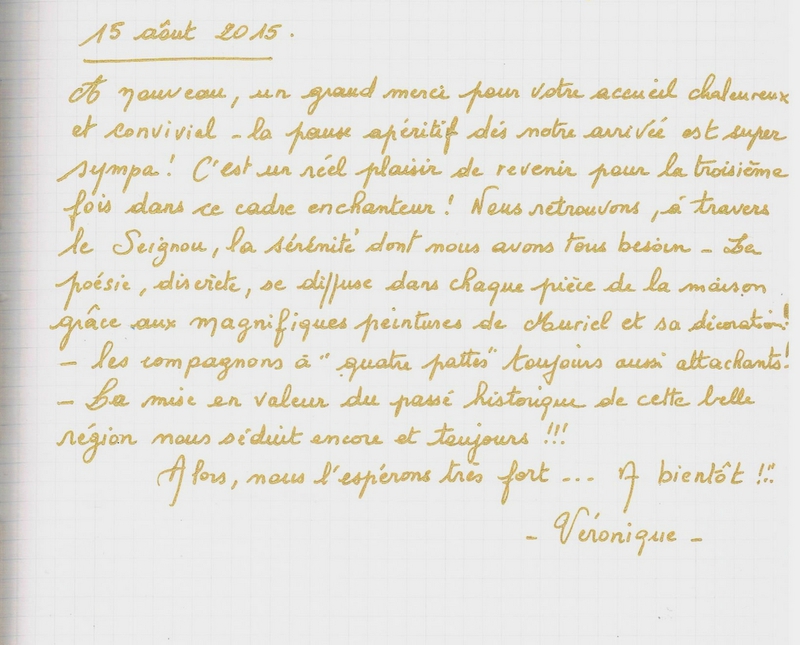 15 août 2015.
A nouveau, un grand merci pour votre accueil chaleureux
et convivial - la pause apéritif dés notre arrivée est super
sympa! C'est un réel plaisir de revenir pour la troisième
fois dans ce cadre enchanteur! Nous retrouvons, à travers
le Seignou, la sérénité dont nous avons tous besoin - La
poésie, discrète, se diffuse dans chaque pièce de la maison
grâce aux magnifiques peintures de Muriel et sa décoration!
- les compagnons à "quatre pattes" toujours aussi attachants!
- La mise en valeur du passé historique de cette belle
région nous séduit encore et toujours !!!
Alors, nous l'espérons très fort ... A bientôt !!
- Véronique -